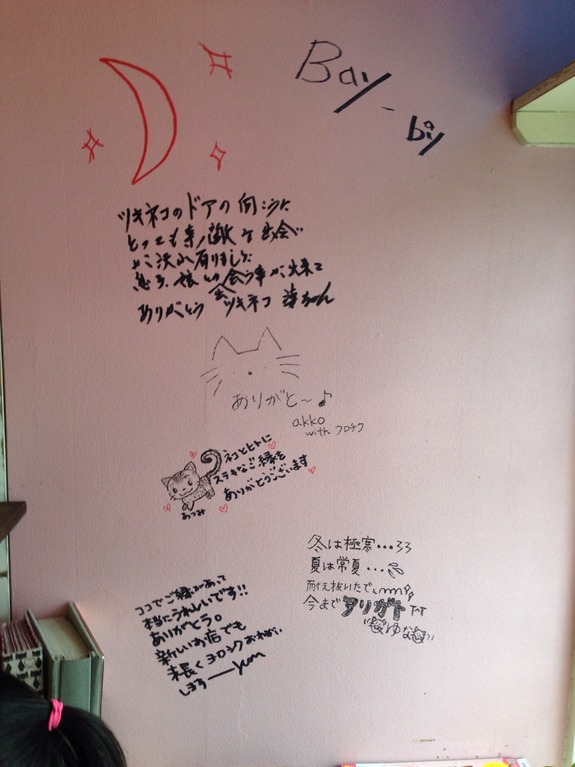 Bay-by
ツキネコのドアの向こうに
とっても素敵な出会い
が沢山有りました
息子、娘との出会う事が出来て
ありがとう ツキネコ
ありがと〜♪
akko
with クロチク
ネコとヒトに
ステキなご縁を
ありがとうございます
あつみ
ココでご縁があって
本当にうれしいです!!
ありがとう。
新しいお店でも
末長くヨロシクおねがい
します ーyum
冬は極寒・・・33
夏は常夏・・・
耐え抜いたで。
今までアリガトTT
ゆな